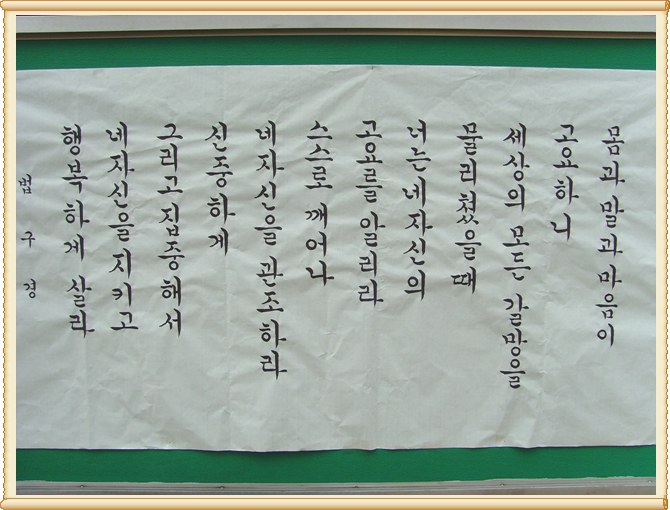 몸과 말과 마음이
고요하니
세상의 모든 갈망을
물리쳤을 때
너는 네 자신의
고요를 알리라
스스로 깨어나
네 자신을 관조하라
신중하게
그리고 집중해서
네 자신을 지키고
행복하게 살라
법구경